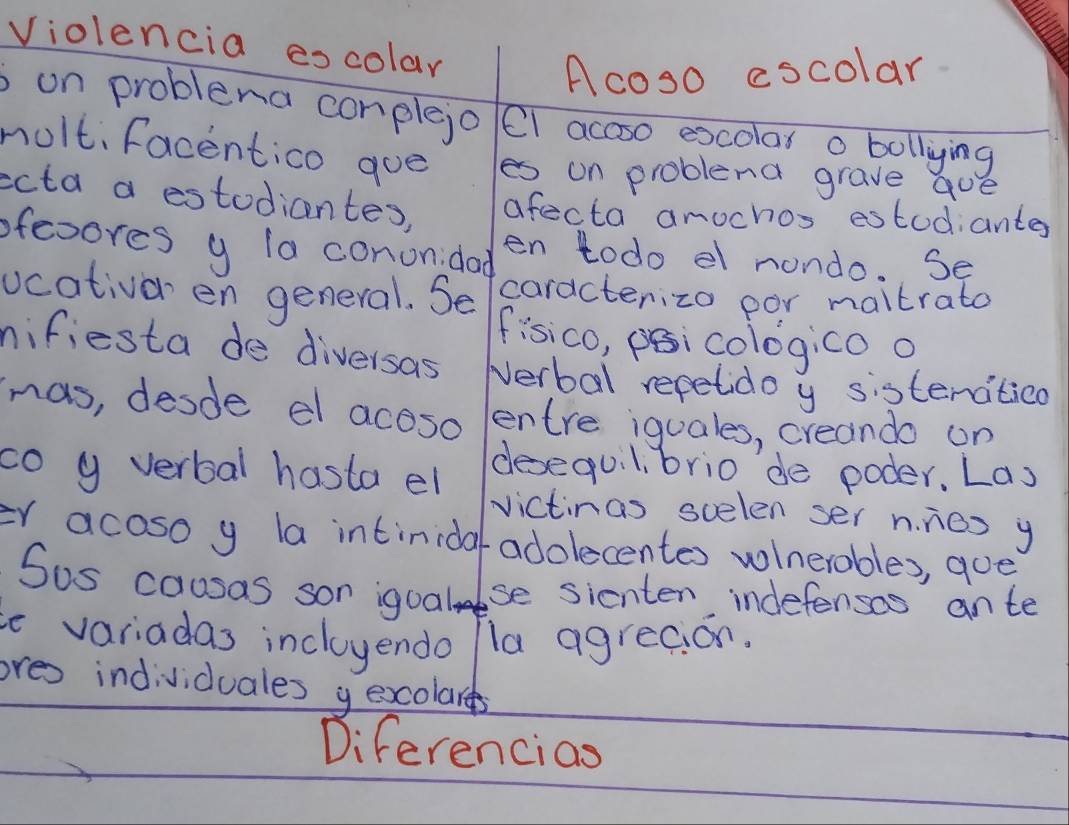 Violencia escolar
Acoso escolar
s un problema complejo
multifacéntico que
ecta a estudiantes,
ofesores y la comunidad
ucativa en general. Se
nifiesta de diversas
mas, desde el acoso
co y verbal hasta el
er acoso y la intimida
Sus causas son igualme
te variadas incluyendo
ores individuales y escolares
El acoso escolar o bullying
es un problema grave que
afecta amuchos estudiantes
en todo el mundo. Se
caracteriza por maltrato
físico, psicológico o
verbal repetido y sistemático
entre iguales, creando un
desequilibrio de poder. Las
victimas suelen ser niños y
adolecentes vulnerables, que
se sienten indefensos ante
la agreción.
Diferencias